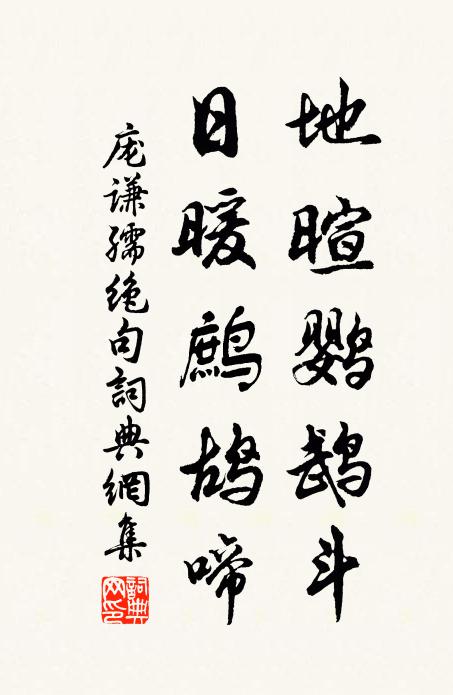 地暄鹦鹉斗
日暖鹧鸪啼
庞谦孺绝句詞典網集
詞典网印